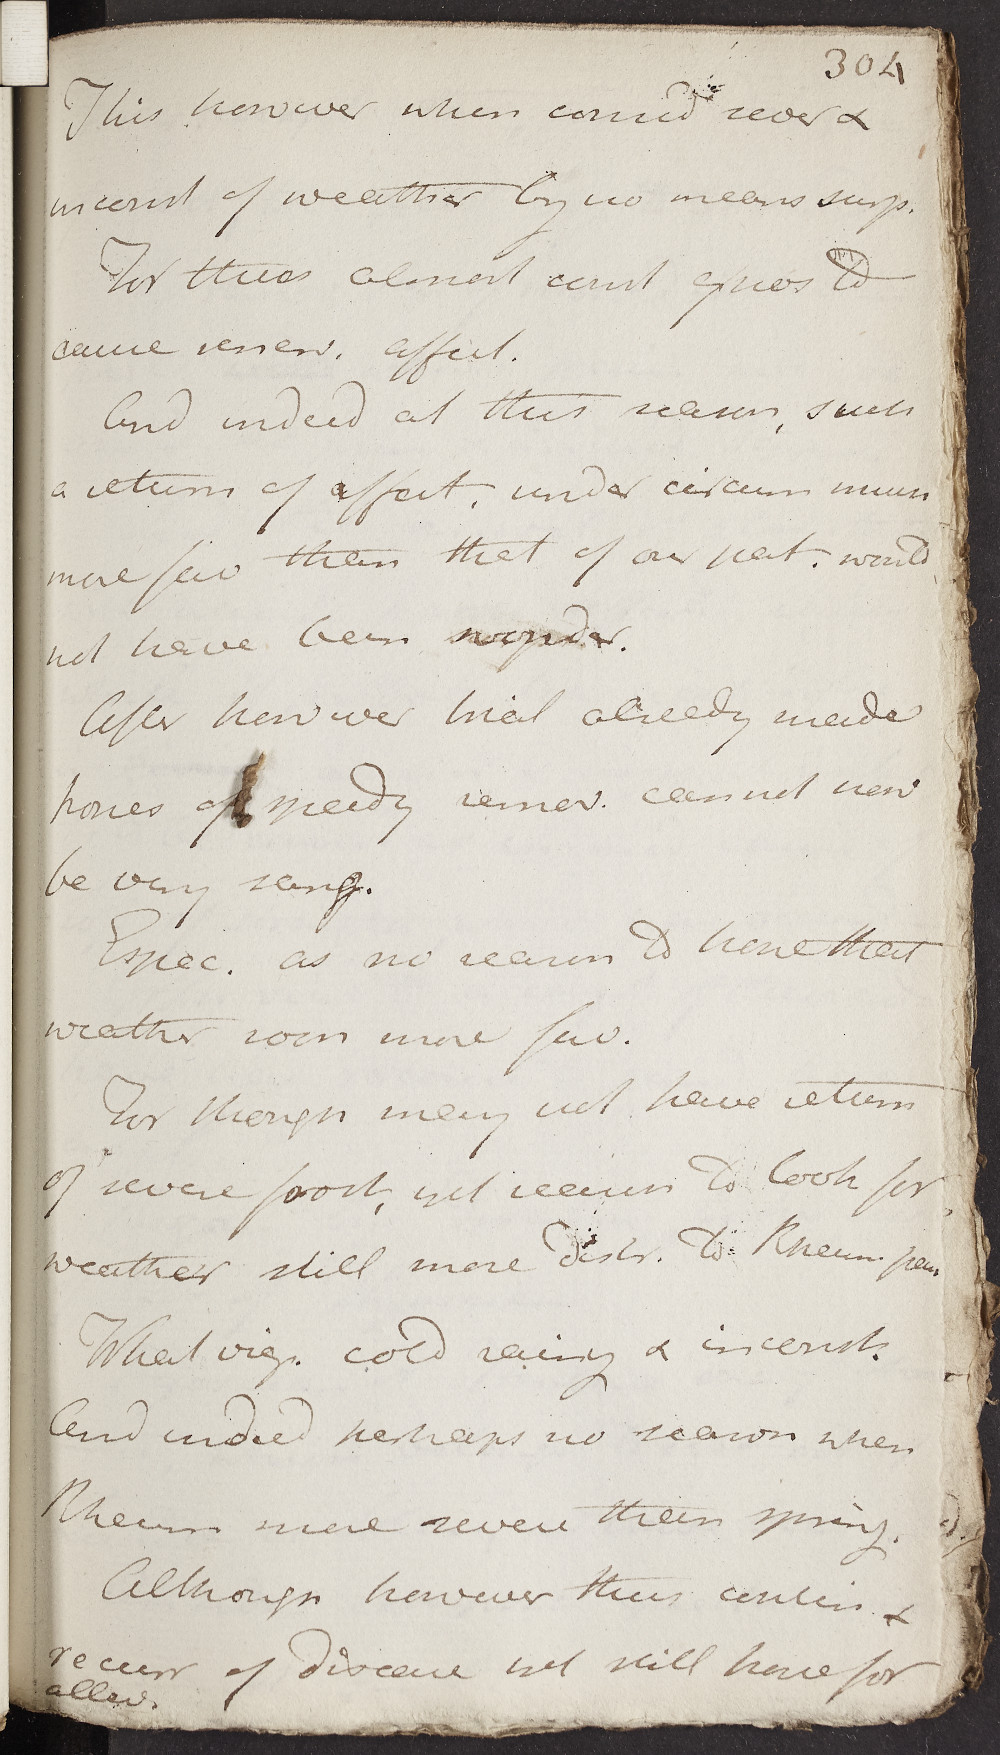 304
This however when consid sever &
inconst of weather by no means surp.
For thus almost const expos to
cause renew. affect.
And indeed at this season, such
a return of affect. under circum much
more fav than that of our pat. would
not have been wonder.
After however trial already made
hopes of speedy remov. cannot now
be very sang.
Espec. as no reason to hope that
weather soon more fav.
For though may not have return
of severe frost, yet reason to look for
weather still more distr. to Rheum
What viz. cold rainy & inconst.
And indeed perhaps no season when
Rheum more severe than spring.
Although however thus contin &
recurr of disease yet still hope for
allev.